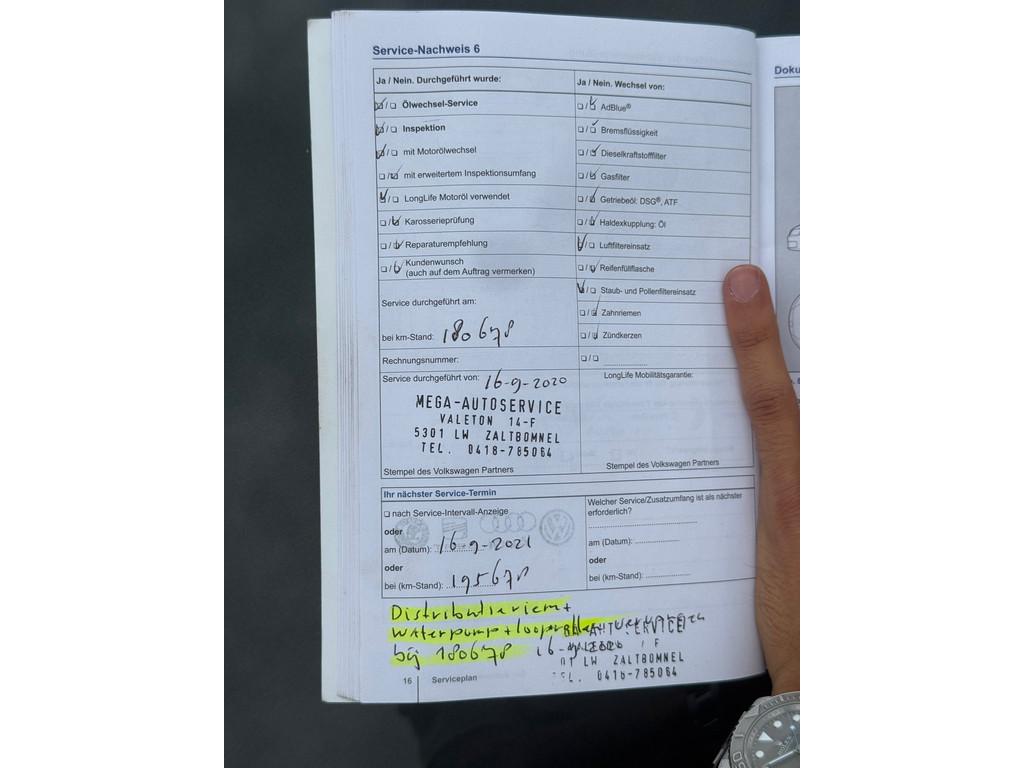 Service-Nachweis 6
Doku
Ja / Nein. Durchgeführt wurde:
Ölwechsel-Service
Inspektion
mit Motorölwechsel
mit erweitertem Inspektionsumfang
LongLife Motoröl verwendet
Karosserieprüfung
Reparaturempfehlung
Kundenwunsch
(auch auf dem Auftrag vermerken)
Service durchgeführt am:
bei km-Stand: 180678
Rechnungsnummer:
Service durchgeführt von: 16-9-2020
MEGA-AUTOSERVICE
VALETON 14-F
5301 LW ZALTBOMNEL
TEL. 0418-785064
Stempel des Volkswagen Partners
Ja / Nein. Wechsel von:
AdBlue®
Bremsflüssigkeit
Dieselkraftstofffilter
Gasfilter
Getriebeöl: DSG®, ATF
Haldexkupplung: Öl
Luftfiltereinsatz
Reifenfüllflasche
Staub- und Pollenfiltereinsatz
Zahnriemen
Zündkerzen
LongLife Mobilitätsgarantie:
Stempel des Volkswagen Partners
Ihr nächster Service-Termin
nach Service-Intervall-Anzeige
oder
am (Datum): 16-9-2021
oder
bei (km-Stand): 195678
Welcher Service/Zusatzumfang ist als nächster
erforderlich?
am (Datum):
oder
bei (km-Stand):
Distributieriem +
waterpomp +
bij 180678 16-9-2020
AUT SERVICE
LW ZALTBOMNEL
0418-785064
16 Serviceplan